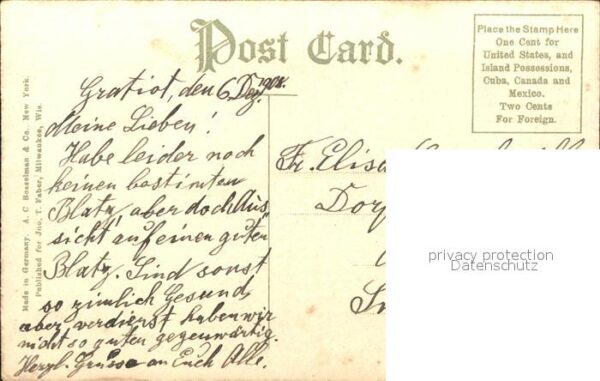 Post Card.
Place the Stamp Here
One Cent for
United States, and
Island Possessions,
Cuba, Canada and
Mexico.
Two Cents
For Foreign.
Made in Germany. A. C. Bosselman & Co., New York.
Published for Jno. T. Faber, Milwaukee, Wis.
Gratiot, den 6 Dez. 1908.
Meine Lieben!
Habe leider noch
keinen bestimten
Blatz, aber doch Aus
sicht auf einen guten
Blatz. Sind sonst
so zimlich Gesund,
aber verdienst haben wir
nicht so guten gegenwärtig.
Herzl. Grüsse an Euch Alle.
Fr. Elis
Dorf
privacy protection
Datenschutz